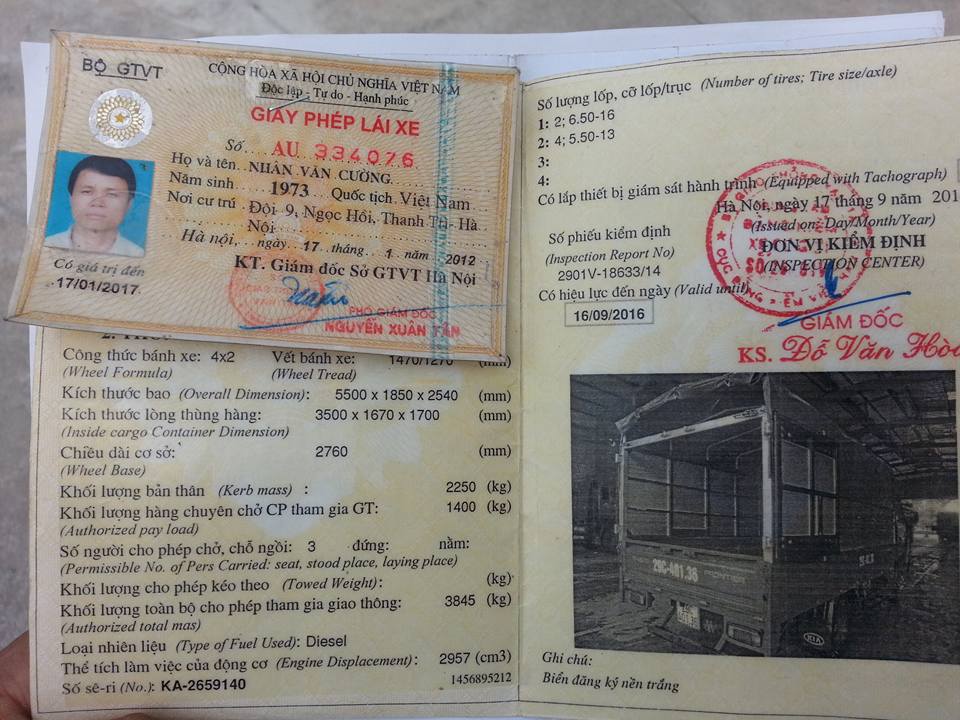 BỘ GTVT
CỘNG HÒA XÃ HỘI CHỦ NGHĨA VIỆT NAM
Độc lập - Tự do - Hạnh phúc
GIẤY PHÉP LÁI XE
Số AU 334076
Họ và tên NHÂN VĂN CƯỜNG
Năm sinh 1973 Quốc tịch Việt Nam
Nơi cư trú Đội 9, Ngọc Hồi, Thanh Trì- Hà
Nội
Hà nội, ngày 17 tháng 1 năm 2012
KT. Giám đốc Sở GTVT Hà Nội
Có giá trị đến
17/01/2017
PHÓ GIÁM ĐỐC
NGUYỄN XUÂN TÂN
Công thức bánh xe: 4x2 Vết bánh xe: 1470/1270 (mm)
(Wheel Formula) (Wheel Tread)
Kích thước bao (Overall Dimension): 5500 x 1850 x 2540 (mm)
Kích thước lòng thùng hàng: 3500 x 1670 x 1700 (mm)
(Inside cargo Container Dimension)
Chiều dài cơ sở: 2760 (mm)
(Wheel Base)
Khối lượng bản thân (Kerb mass) : 2250 (kg)
Khối lượng hàng chuyên chở CP tham gia GT: 1400 (kg)
(Authorized pay load)
Số người cho phép chở, chỗ ngồi: 3 đứng: nằm:
(Permissible No. of Pers Carried: seat, stood place, laying place)
Khối lượng cho phép kéo theo (Towed Weight): (kg)
Khối lượng toàn bộ cho phép tham gia giao thông: 3845 (kg)
(Authorized total mas)
Loại nhiên liệu (Type of Fuel Used): Diesel
Thể tích làm việc của động cơ (Engine Displacement): 2957 (cm3)
Số sê-ri (No.): KA-2659140 1456895212
Số lượng lốp, cỡ lốp/trục (Number of tires; Tire size/axle)
1: 2; 6.50-16
2: 4; 5.50-13
3:
4:
Có lắp thiết bị giám sát hành trình (Equipped with Tachograph)
Hà Nội, ngày 17 tháng 9 năm 201
(Issued on: Day/Month/Year)
Số phiếu kiểm định ĐƠN VỊ KIỂM ĐỊNH
(Inspection Report No) (INSPECTION CENTER)
2901V-18633/14
Có hiệu lực đến ngày (Valid until)
16/09/2016
GIÁM ĐỐC
KS. Đỗ Văn Hòa
29C-401.36
KIA
Ghi chú:
Biển đăng ký nền trắng